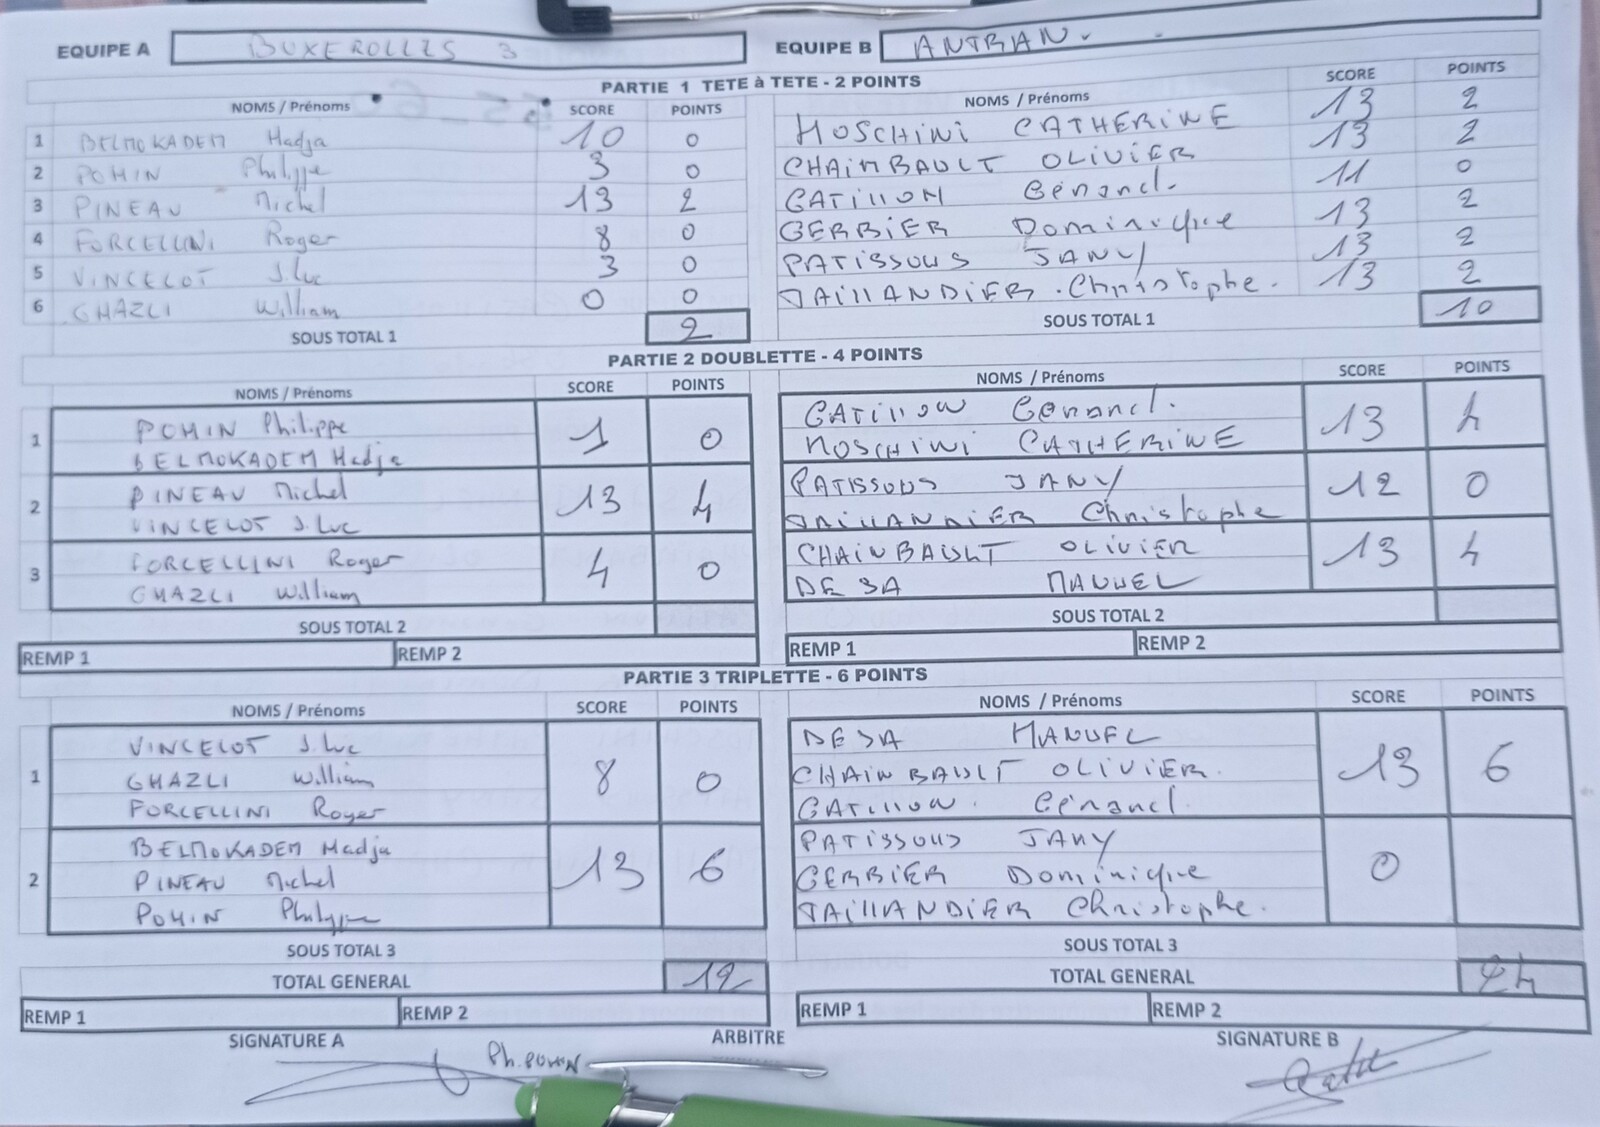 EQUIPE A BUXEROLLES 3 EQUIPE B ANTRAN.
PARTIE 1 TETE à TETE - 2 POINTS
NOMS / Prénoms SCORE POINTS NOMS / Prénoms SCORE POINTS
1 BELMOKADEM Hadja 10 0 MOSCHINI CATHERINE 13 2
2 POMIN Philippe 3 0 CHAIMBAULT OLIVIER 13 2
3 PINEAU Michel 13 2 GATILLON Génancl. 11 0
4 FORCELLINI Roger 8 0 GERBIER Dominique 13 2
5 VINCELOT J.Luc 3 0 PATISSOUS JANY 13 2
6 GHAZLI William 0 0 TAILLANDIER. Christophe. 13 2
SOUS TOTAL 1 2 SOUS TOTAL 1 10
PARTIE 2 DOUBLETTE - 4 POINTS
NOMS / Prénoms SCORE POINTS NOMS / Prénoms SCORE POINTS
1 POMIN Philippe 1 0 GATILLON Génancl. 13 4
BELMOKADEM Hadja MOSCHINI CATHERINE
2 PINEAU Michel 13 4 PATISSOUS JANY 12 0
VINCELOT J.Luc TAILLANDIER Christophe
3 FORCELLINI Roger 4 0 CHAINBAULT OLIVIER 13 4
GHAZLI William DE SA MANUEL
SOUS TOTAL 2 SOUS TOTAL 2
REMP 1 REMP 2 REMP 1 REMP 2
PARTIE 3 TRIPLETTE - 6 POINTS
NOMS / Prénoms SCORE POINTS NOMS / Prénoms SCORE POINTS
1 VINCELOT J.Luc DE SA MANUEL
GHAZLI William 8 0 CHAINBAULT OLIVIER. 13 6
FORCELLINI Roger GATILLON. Génancl.
BELMOKADEM Hadja PATISSOUS JANY
2 PINEAU Michel 13 6 GERBIER Dominique 0
POMIN Philippe TAILLANDIER Christophe.
SOUS TOTAL 3 SOUS TOTAL 3
TOTAL GENERAL 12 TOTAL GENERAL 24
REMP 1 REMP 2 REMP 1 REMP 2
SIGNATURE A ARBITRE SIGNATURE B
Ph. POMIN